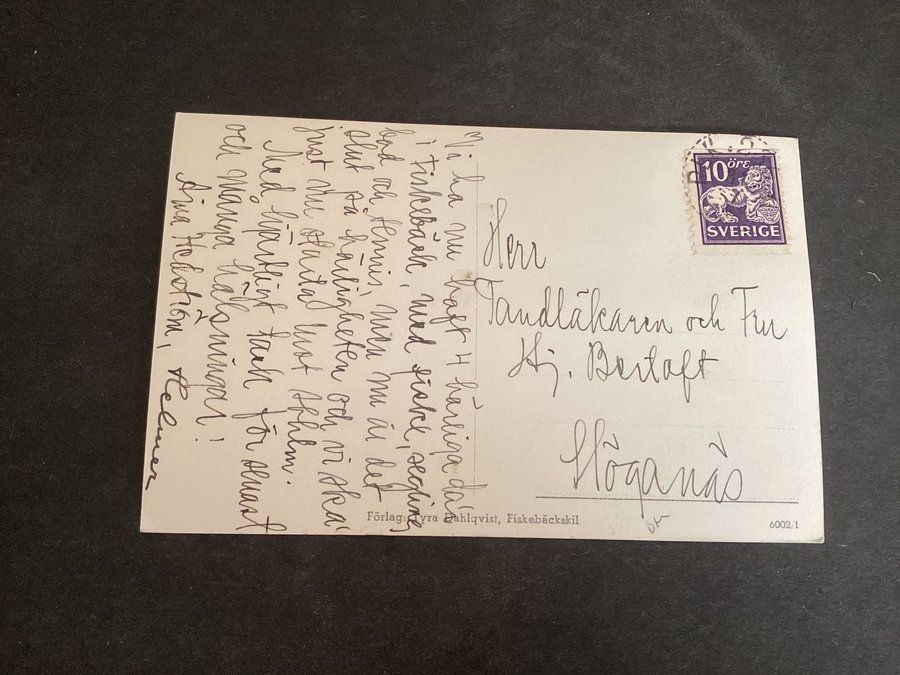 Vi ha nu haft 4 härliga da'r
i Fiskebäck, med fiske, segling,
bad och tennis, men nu är det
slut på härligheten och vi ska'
just nu starta mot Sthlm.
Med hjärtligt tack för senast
och många hälsningar!
Helmer
10 ÖRE
SVERIGE
Herr
Tandläkaren och Fru
Hj. Bertoft
Höganäs
Förlag: Tyra Dahlqvist, Fiskebäckskil
6002/1